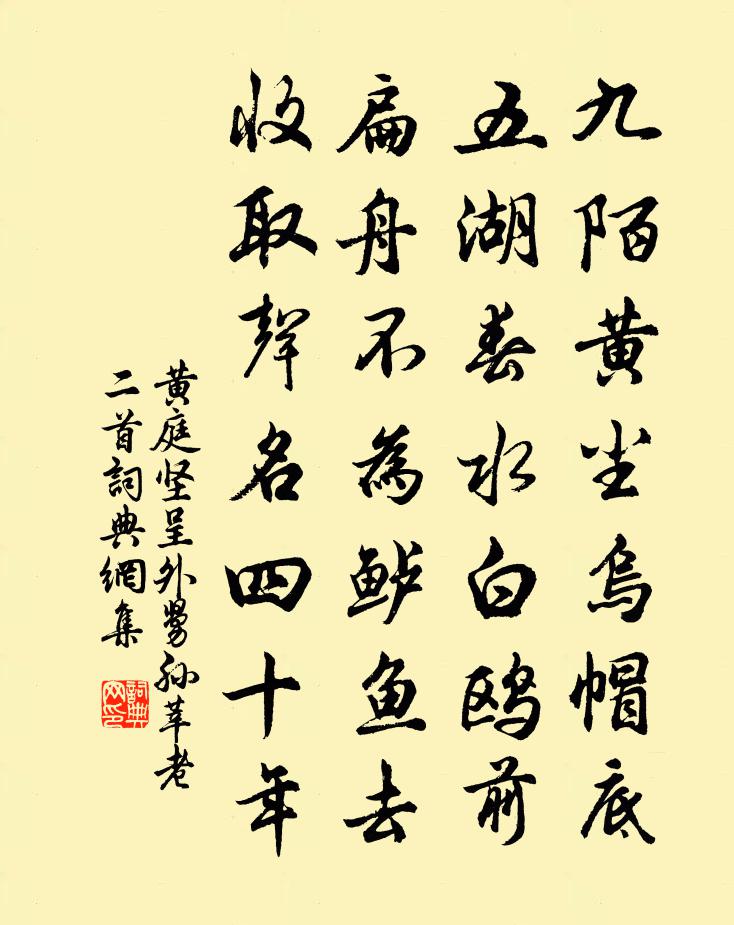 九陌黄尘烏帽底
五湖春水白鸥前
扁舟不為鲈鱼去
收取聲名四十年
黄庭坚呈外舅孙莘老
二首詞典網集
詞典
网印